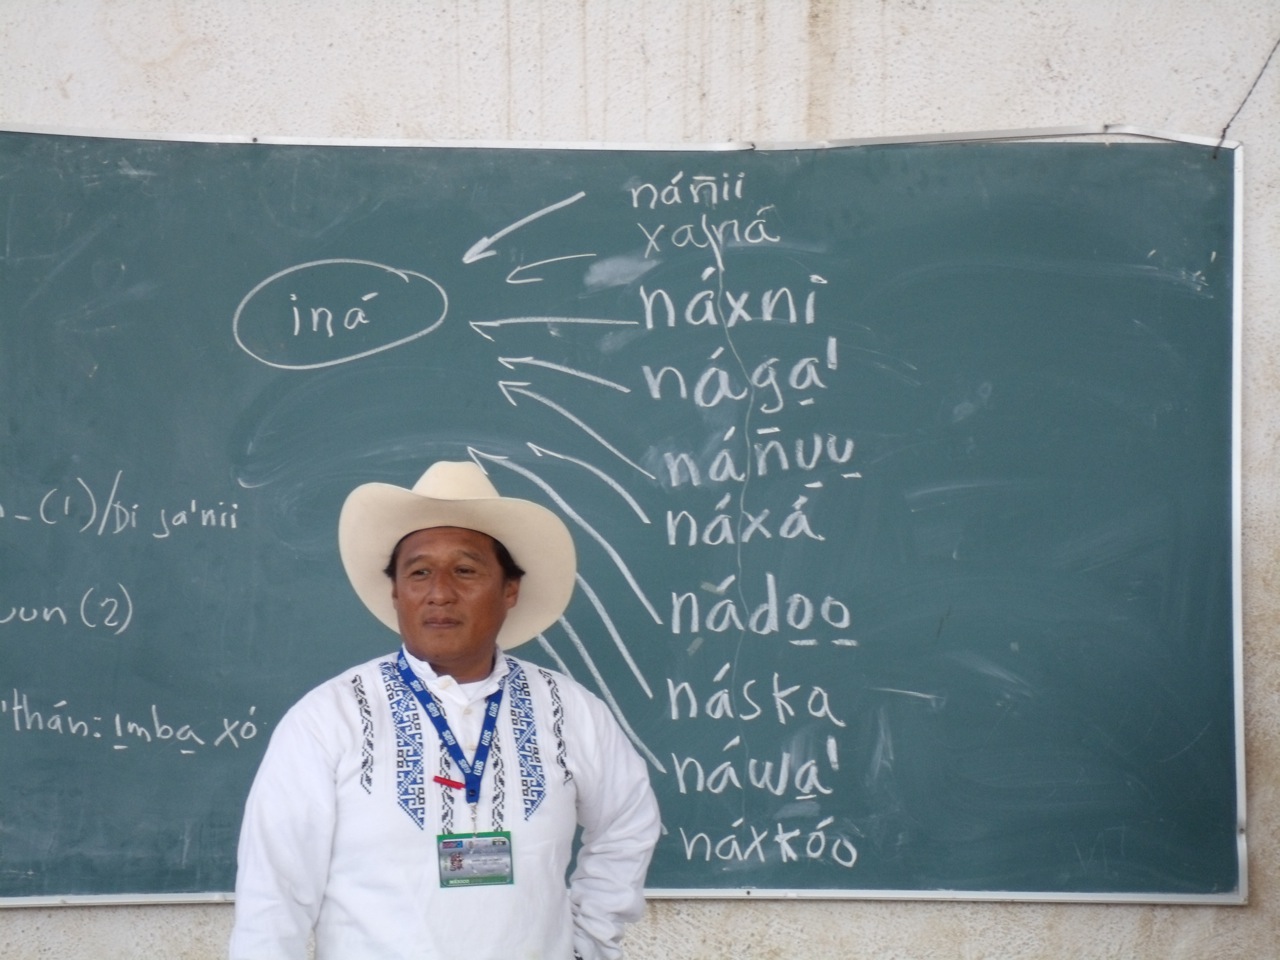 náñii
xaná
iná
náxni
nága̱'
náñu̱u̱
náxá
nádo̱o̱
náska
náwa̱'
náxkóo
(1)/Di ja'nii
(2)
'thán: I̱mba̱ xó